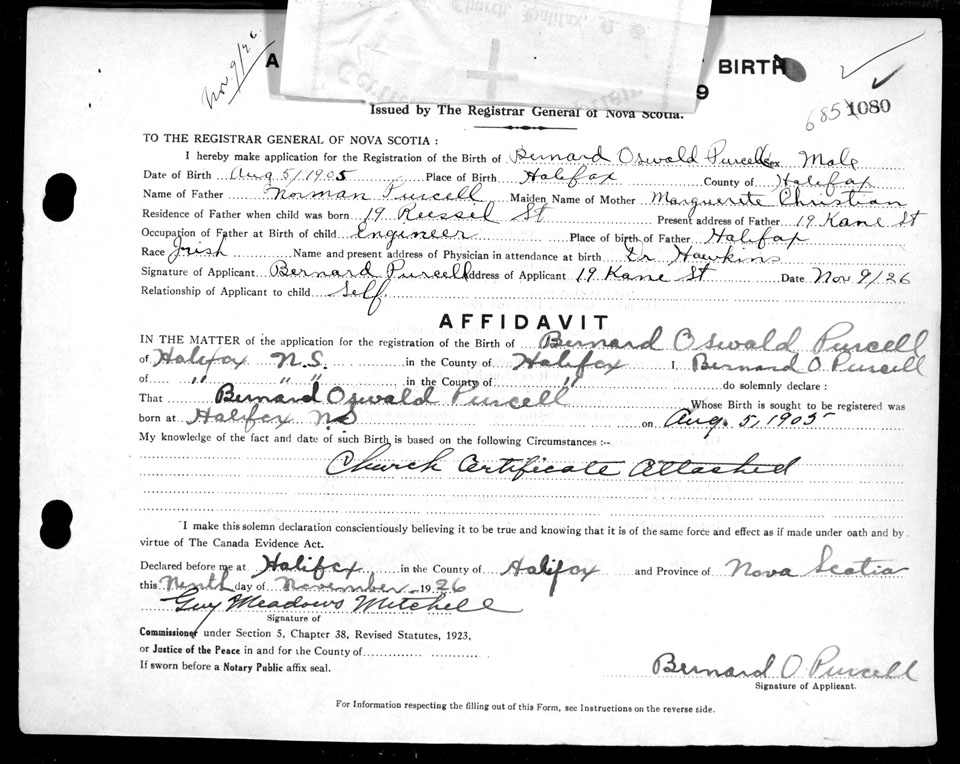 Church, Halifax, N. S.
Nov. 9/26
A
BIRTH
9
Issued by The Registrar General of Nova Scotia.
685 1080
TO THE REGISTRAR GENERAL OF NOVA SCOTIA :
I hereby make application for the Registration of the Birth of Bernard Oswald Purcell Sex Male
Date of Birth Aug 5/1905 Place of Birth Halifax County of Halifax
Name of Father Norman Purcell Maiden Name of Mother Marguerite Christian
Residence of Father when child was born 19 Russel St Present address of Father 19 Kane St
Occupation of Father at Birth of child Engineer Place of birth of Father Halifax
Race Irish Name and present address of Physician in attendance at birth Dr. Hawkins
Signature of Applicant Bernard Purcell Address of Applicant 19 Kane St Date Nov 9/26
Relationship of Applicant to child Self.
AFFIDAVIT
IN THE MATTER of the application for the registration of the Birth of Bernard Oswald Purcell
of Halifax N.S. in the County of Halifax I, Bernard O. Purcell
of " " " in the County of " do solemnly declare :
That Bernard Oswald Purcell Whose Birth is sought to be registered was
born at Halifax N.S on Aug. 5, 1905
My knowledge of the fact and date of such Birth is based on the following Circumstances :--
Church Certificate Attached
I make this solemn declaration conscientiously believing it to be true and knowing that it is of the same force and effect as if made under oath and by
virtue of The Canada Evidence Act.
Declared before me at Halifax in the County of Halifax and Province of Nova Scotia
this Ninth day of November 1926
Guy Meadows Mitchell
Signature of
Commissioner under Section 5, Chapter 38, Revised Statutes, 1923,
or Justice of the Peace in and for the County of
If sworn before a Notary Public affix seal.
Bernard O Purcell
Signature of Applicant.
For Information respecting the filling out of this Form, see Instructions on the reverse side.